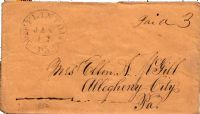 JAN
Paid 3
Mrs Ellen A. McGill
Allegheny City
Pa.